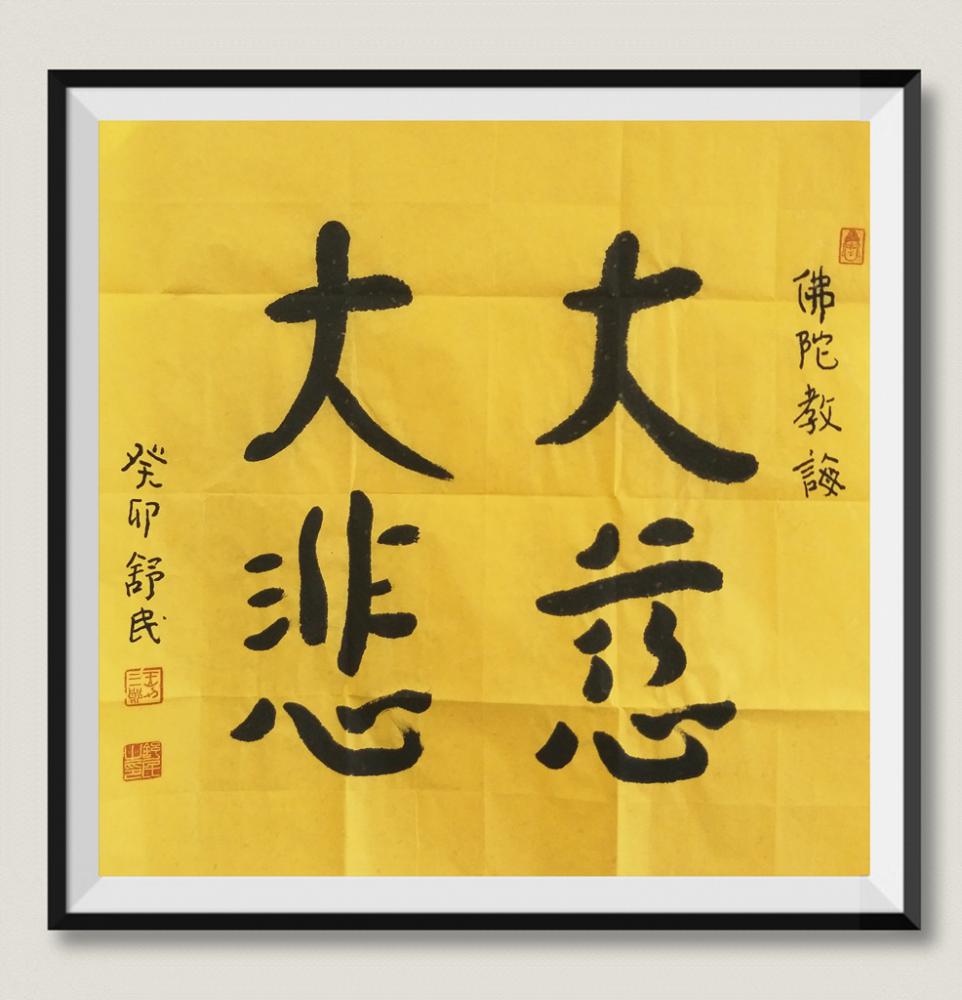 佛陀教誨
大慈
大悲
癸卯舒民